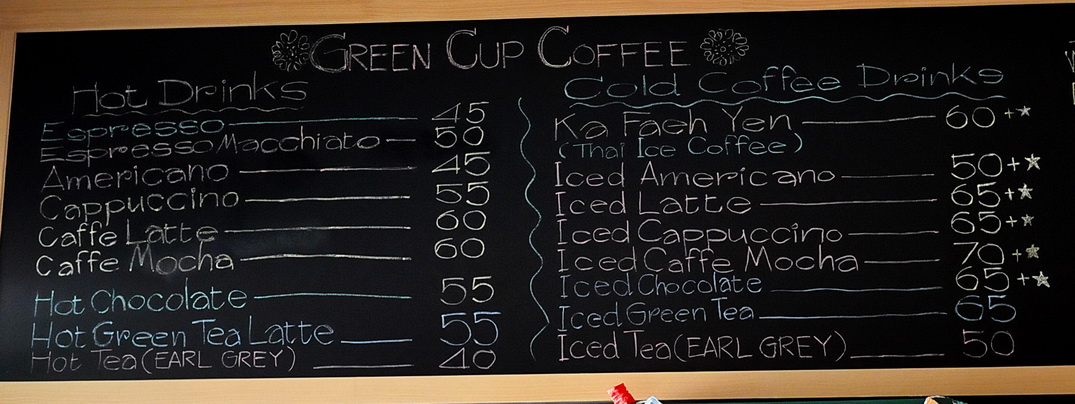 GREEN CUP COFFEE
Hot Drinks
Espresso 45
Espresso Macchiato 50
Americano 45
Cappuccino 55
Caffe Latte 60
Caffe Mocha 60
Hot Chocolate 55
Hot Green Tea Latte 55
Hot Tea (EARL GREY) 40
Cold Coffee Drinks
Ka Faeh Yen 60+★
(Thai Ice Coffee)
Iced Americano 50+★
Iced Latte 65+★
Iced Cappuccino 65+★
Iced Caffe Mocha 70+★
Iced Chocolate 65+★
Iced Green Tea 65
Iced Tea (EARL GREY) 50